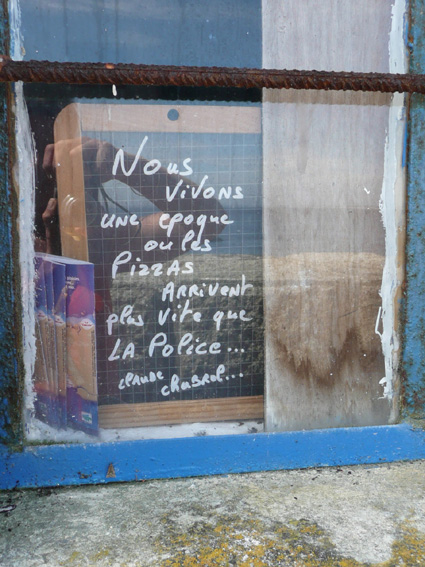 Nous
vivons
une epoque
ou les
Pizzas
ARRivent
plus vite que
LA Police...
CLAUDE
chabrol...